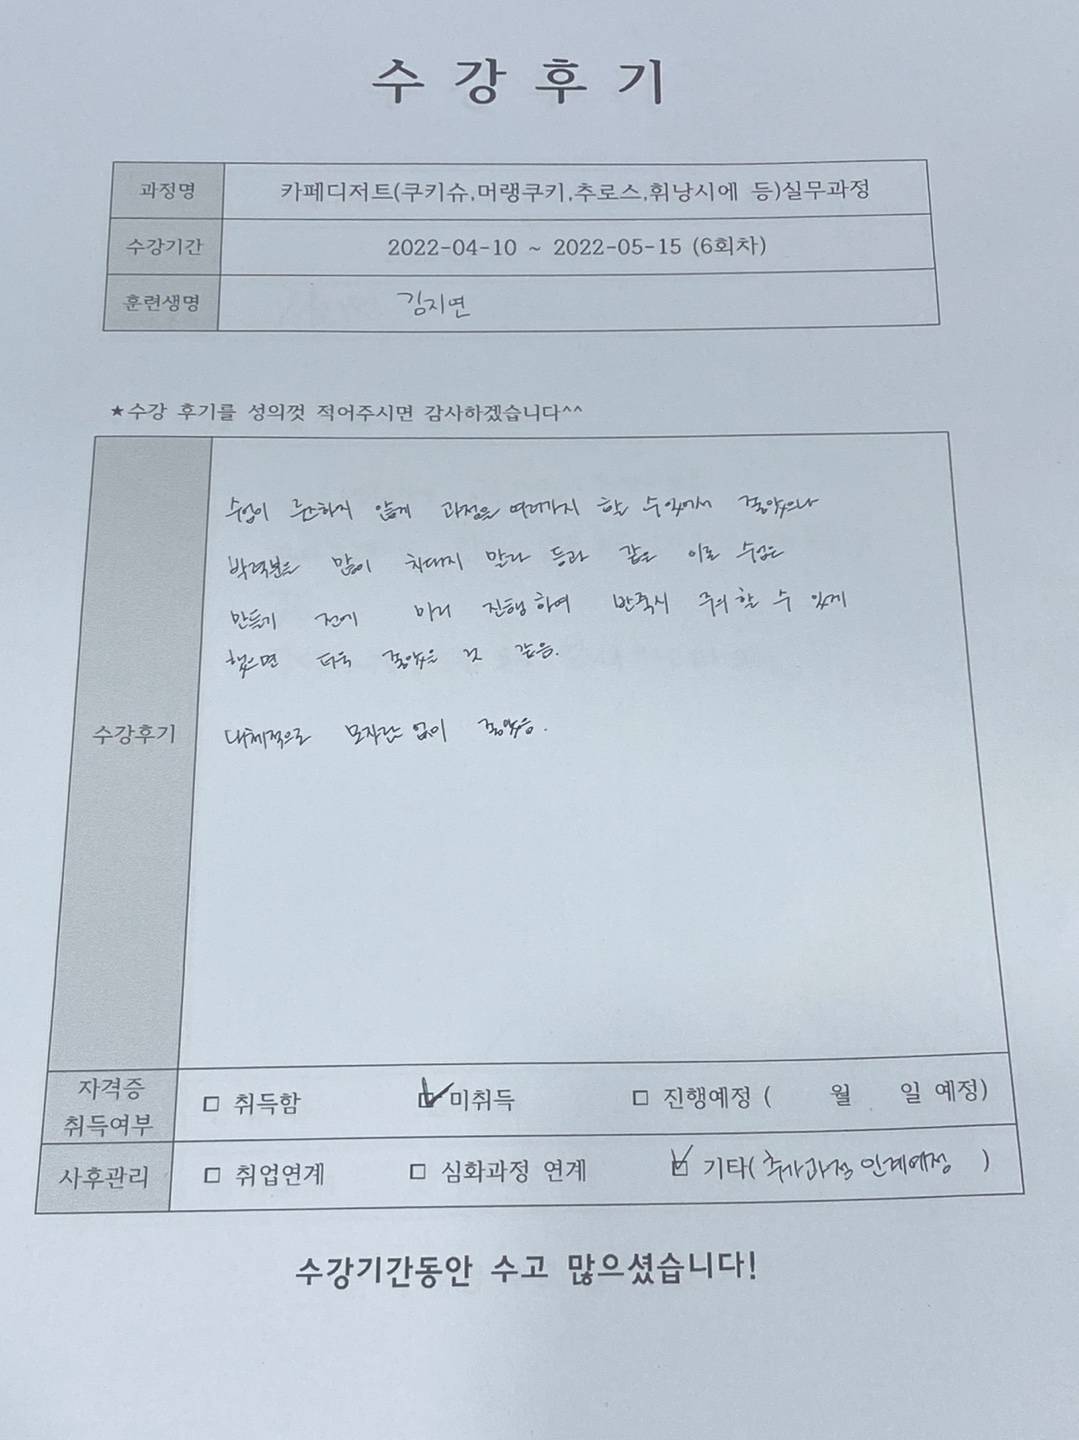 수 강 후 기
과정명 카페디저트(쿠키슈,머랭쿠키,추로스,휘낭시에 등)실무과정
수강기간 2022-04-10 ~ 2022-05-15 (6회차)
훈련생명 김지연
★수강 후기를 성의껏 적어주시면 감사하겠습니다^^
수업이 루즈하지 않게 과정을 여러가지 할 수 있어서 좋았으나
박력분은 많이 치대지 말라 등과 같은 이론 수업은
만들기 전에 미리 진행하여 반죽시 주의할 수 있게
했으면 더욱 좋았을 것 같음.
수강후기
대체적으로 모자란 없이 좋았음.
자격증
취득여부
□ 취득함 □ 미취득 □ 진행예정 ( 월 일 예정)
사후관리 □ 취업연계 □ 심화과정 연계 □ 기타( 추가과정 연계예정 )
수강기간동안 수고 많으셨습니다!